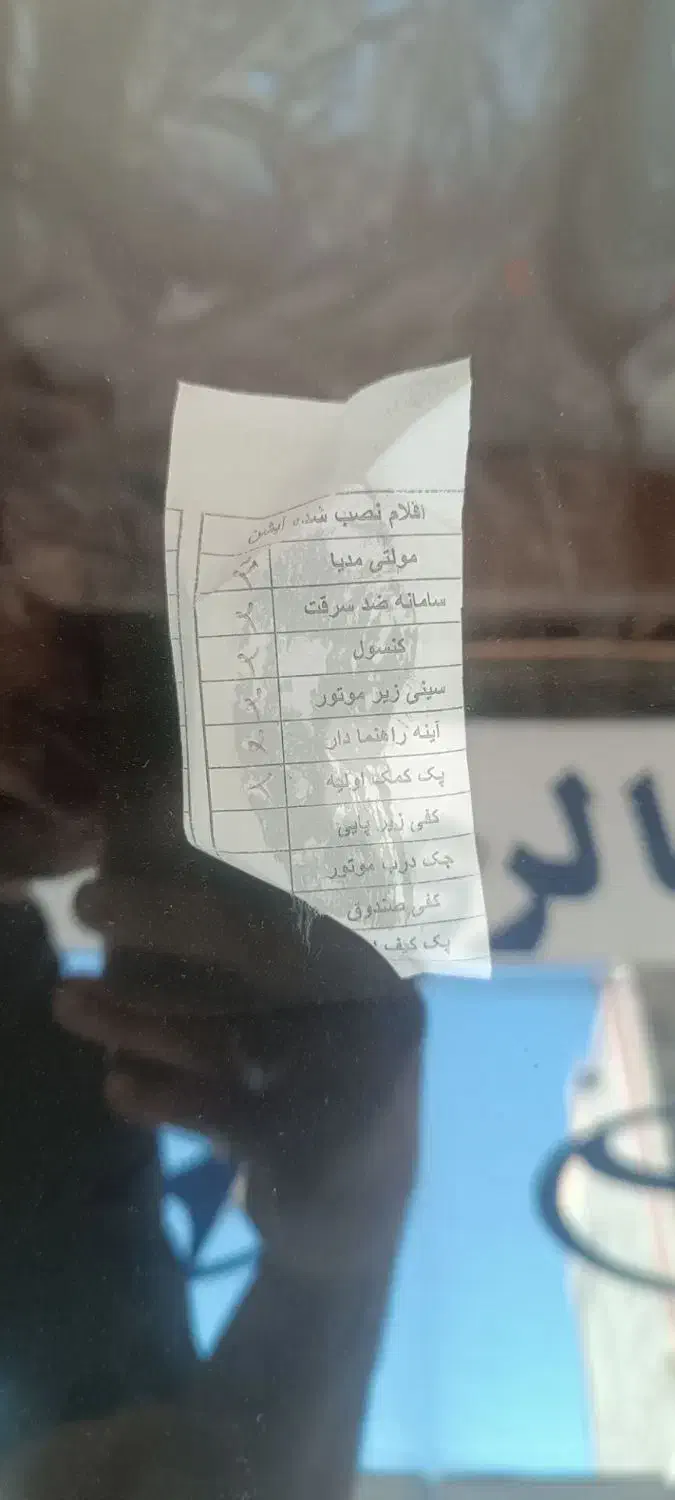 اقلام نصب شده آپشن
مولتی مدیا
سامانه ضد سرقت
کنسول
سینی زیر موتور
آینه راهنما دار
پک کمک اولیه
کفی زیر پایی
جک درب موتور
کفی صندوق
پک کیف